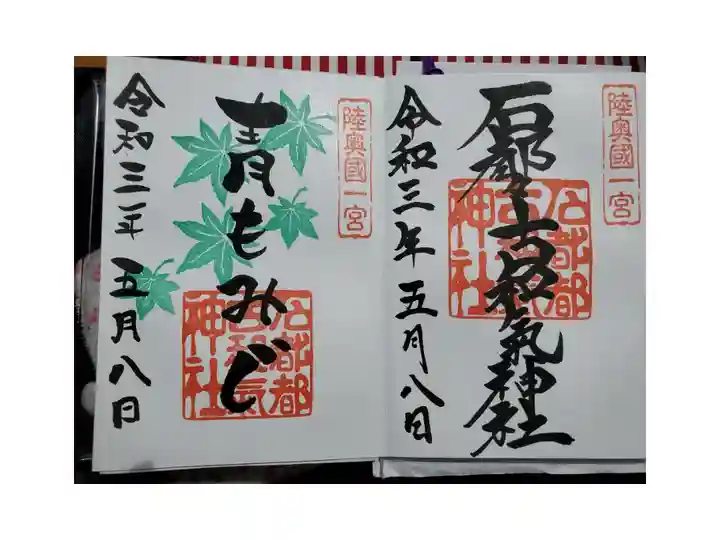 陸奥國一宮
石都々古和氣神社
石都都
古和氣
神社
令和三年五月八日
陸奥國一宮
青もみじ
石都都
古和氣
神社
令和三年五月八日